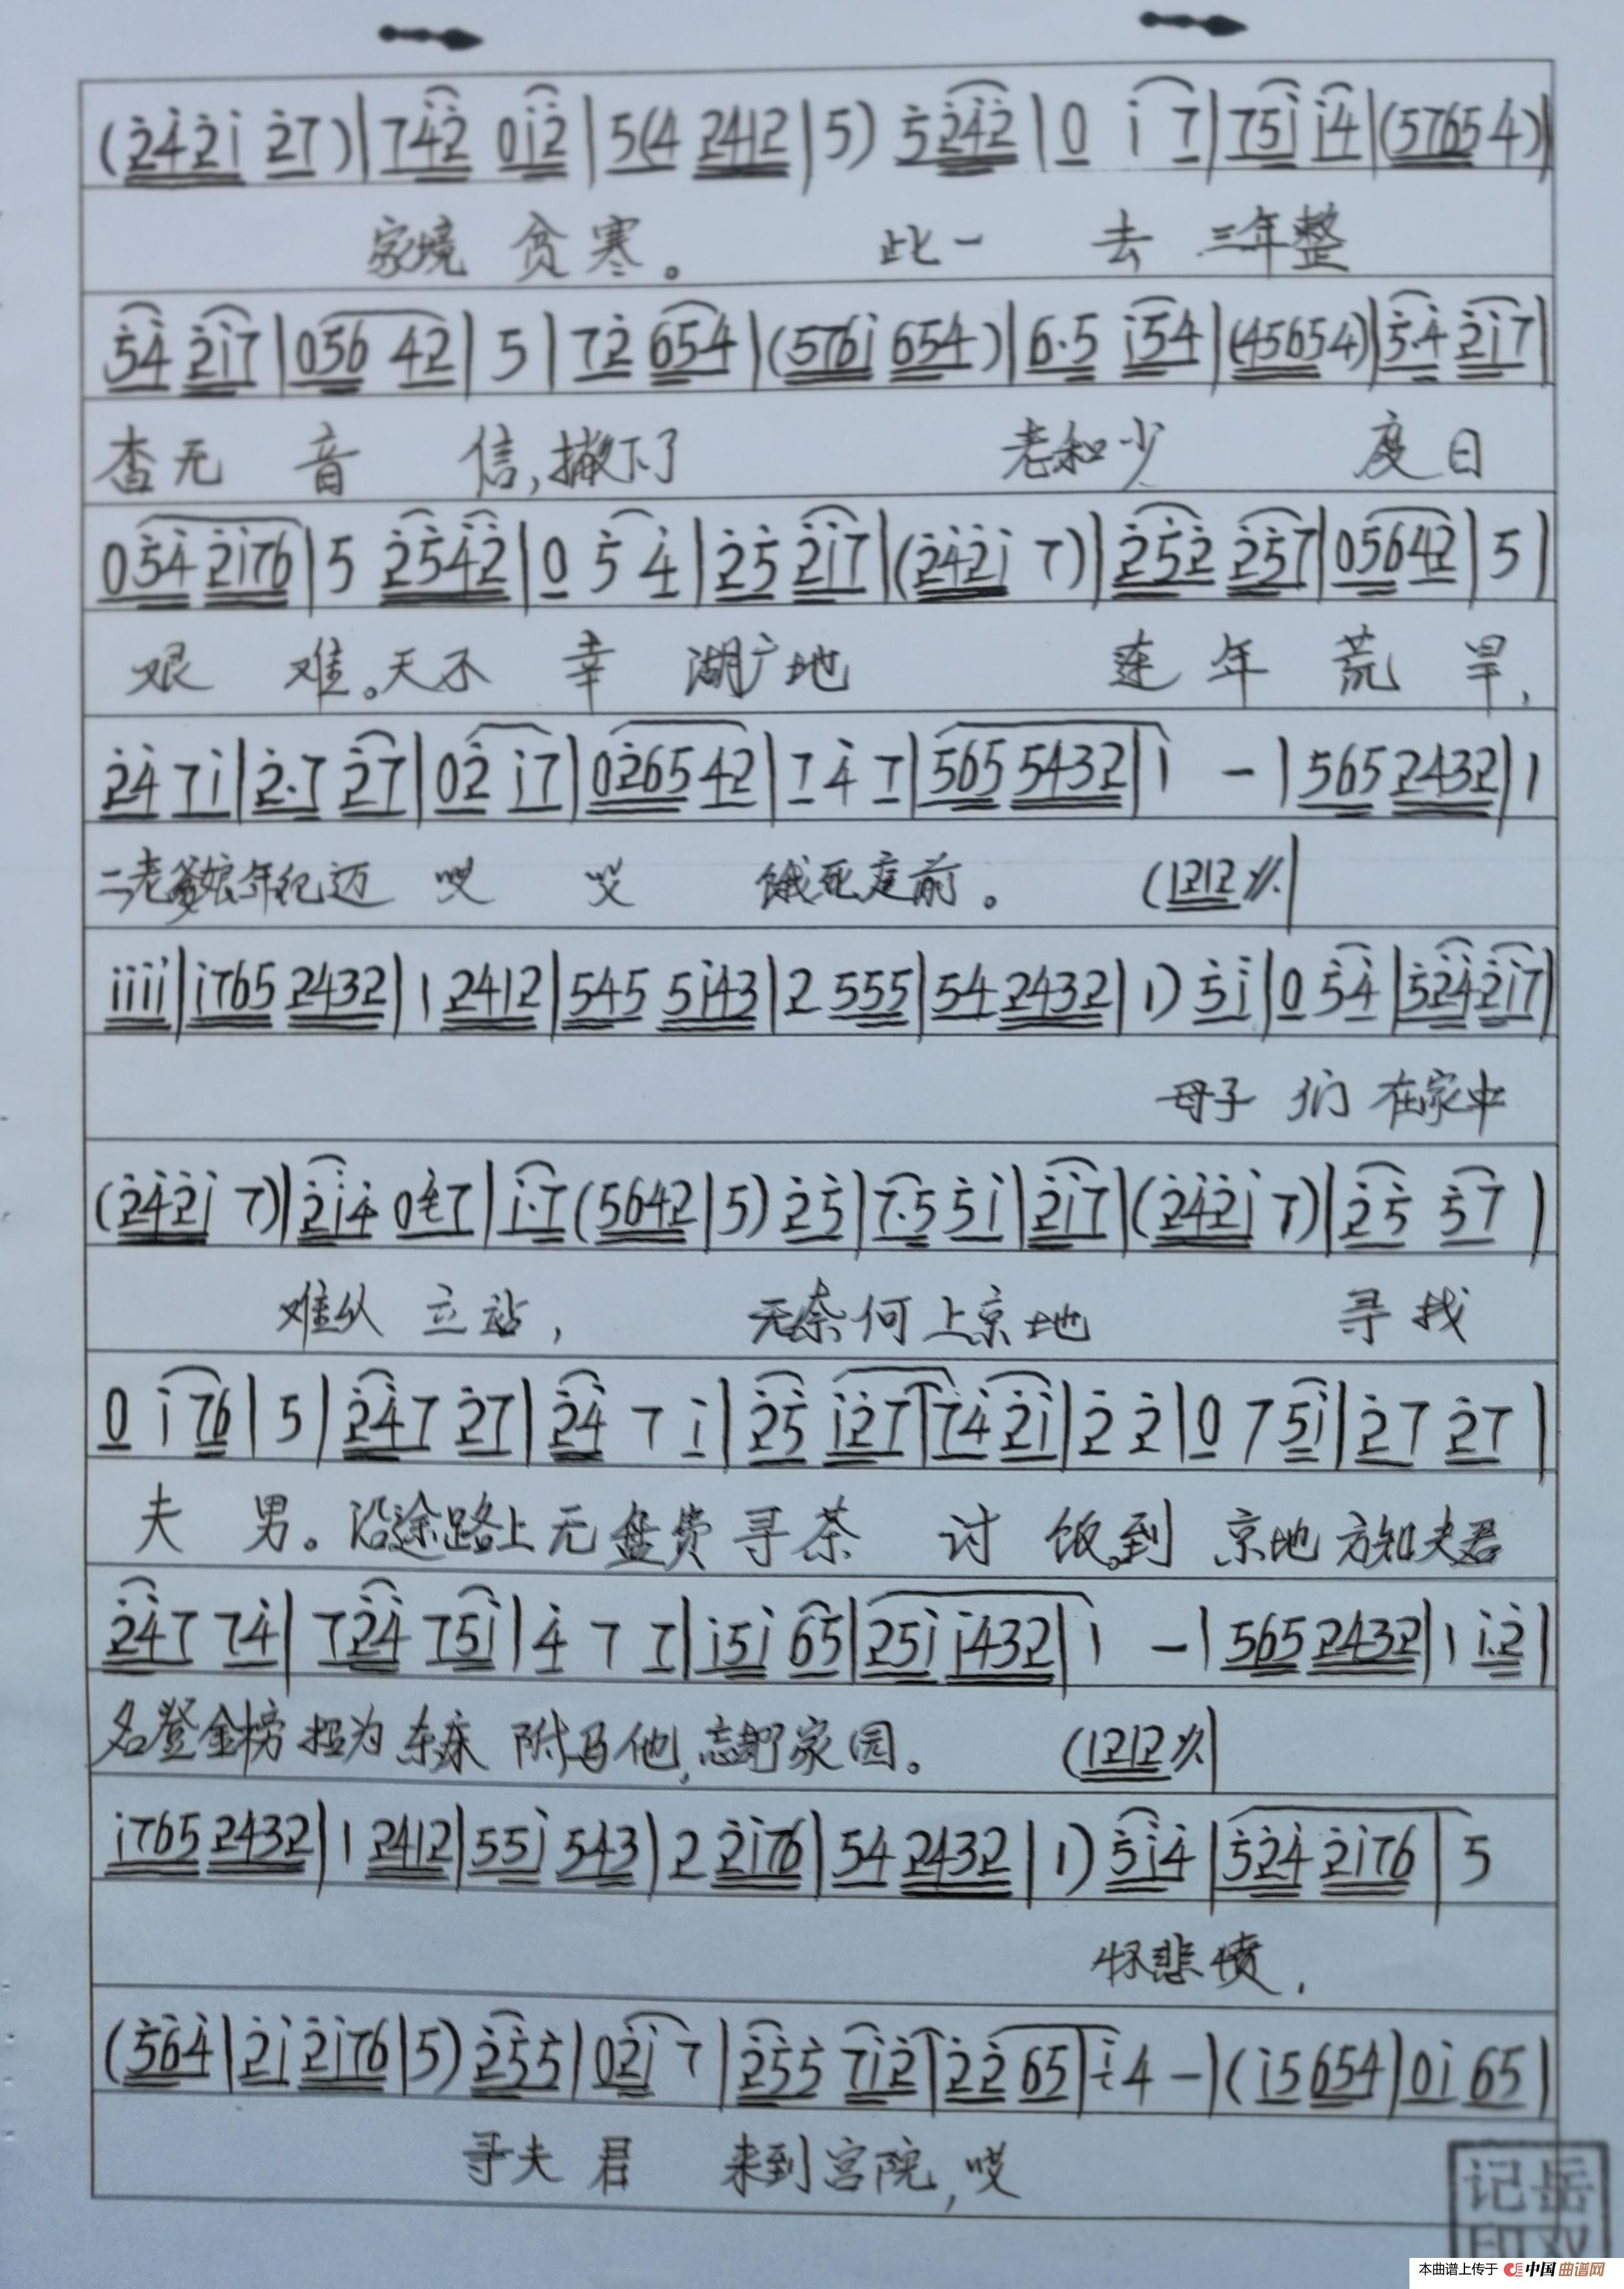 (2421 27)|742 012|5(4 2412|5) 5242|0 i 7|751 i4|(57654)|
家境 贫寒。 此一 去 三年整
54 217|056 42|5|72 654|(576i 654)|6·5 i54|(45654)|5·4 217|
杳无 音 信,撇下了 老和少 度日
054 2176|5 2542|0 5 4|25 217|(2421 7)|252 257|05642|5|
艰 难。天不 幸 湖广地 连 年 荒 旱,
24 7i|2·7 27|02 i7|026542|7 4 7|565 5432|1 -|565 2432|1
二老爹娘年纪迈 哎 哎 饿死庭前。 (1212 ⁒|
iiii|i765 2432|1 2412|545 5i43|2 555|54 2432|1) 5i|0 54|524 2i7|
母子 们 在家中
(242i 7)|2i4 047|i·7(5642|5) 25|7·5 5i|2i7|(242i 7)|25 57|
难以 立站, 无奈何上京地 寻找
0 i 76|5|247 27|24 7 i|25 i27|74 2i|2 2|0 7 5i|27 27|
夫 男。沿途路上无盘费寻茶 讨 饭。到 京地方知夫君
247 74|724 75i|4 7 7|i5i 65|25i i432|1 -|565 2432|1 i·2|
名登金榜招为东床 附马他,忘却家园。 (1212 ⁒|
i765 2432|1 2412|55i 543|2 2i76|54 2432|1) 5i4|524 2i76|5
怀悲愤,
(564|2i 2i76|5) 255|02i 7|255 7i2|22 65|i 4 -|(i5 654|0i 65|
寻夫 君 来到宫院,哎
记岳
本曲谱上传于 中国曲谱网